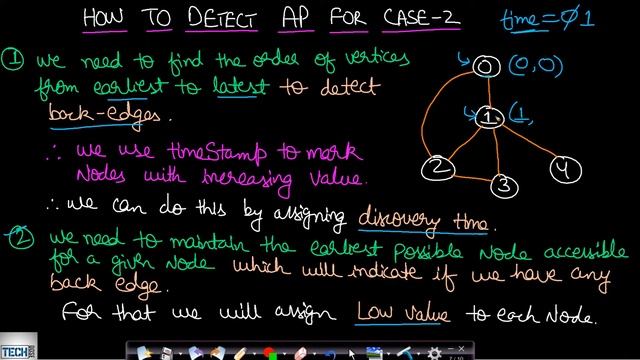 HOW TO DETECT AP FOR CASE-2
time = 0 1
① we need to find the order of vertices
from earliest to latest to detect
back-edges.
∴ we use timeStamp to mark
Nodes with increasing value.
∴ we can do this by assigning discovery time.
② we need to maintain the earliest possible Node accessible
for a given Node which will indicate if we have any
back edge.
For that we will assign Low value to each Node.
0 (0,0)
1 (1,
2
3
4
TECH
DOSE